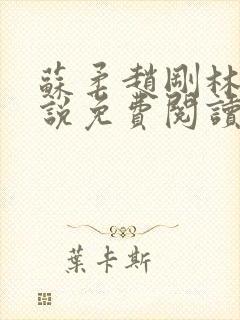 蘇柔趙剛林
說免費閱讀
葉卡斯